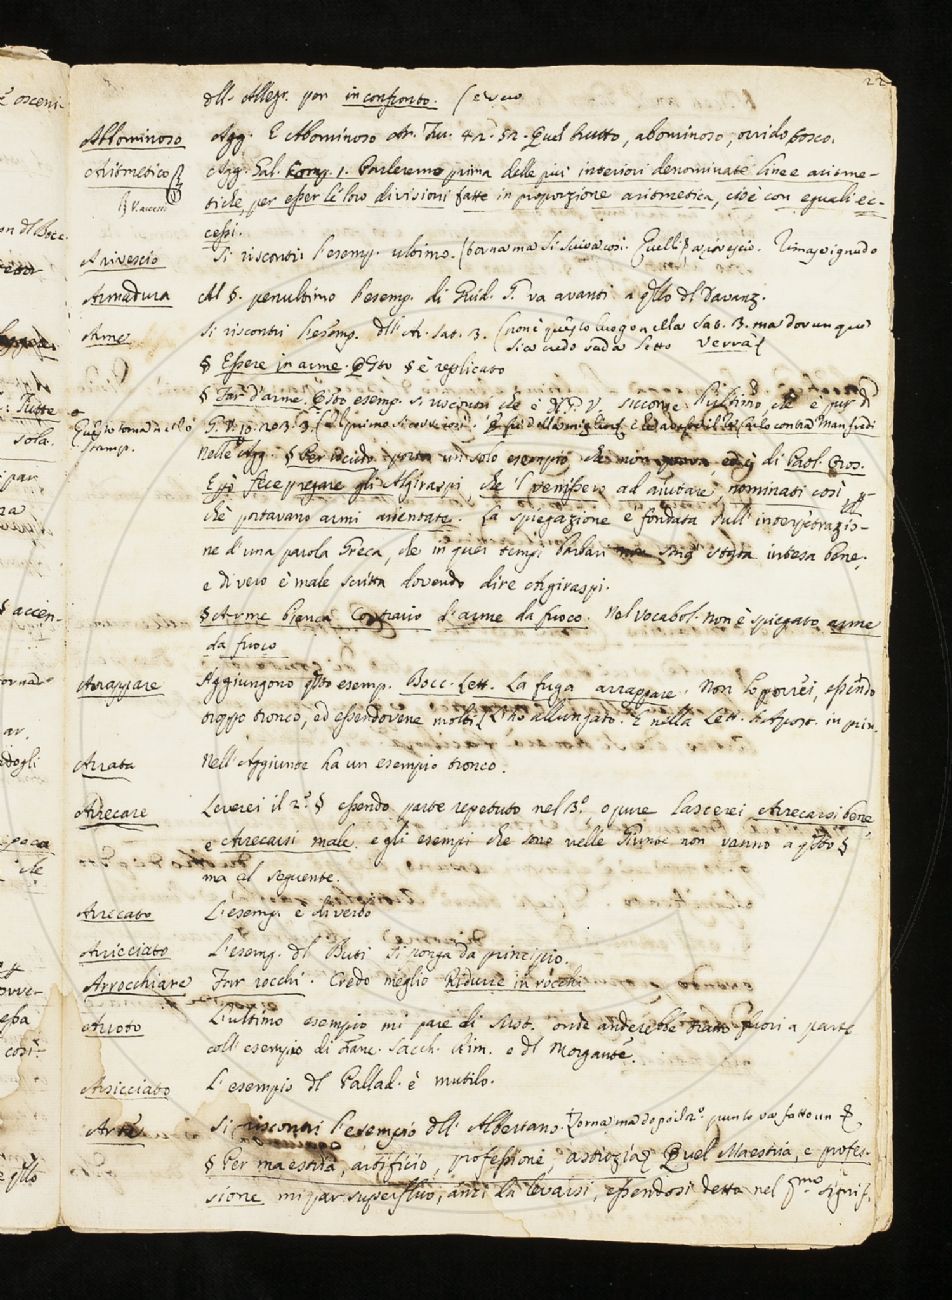 22
dll' Allegr. per in confronto. (e vero
Abbominoso Agg. E Abominoso Ar. Fu. 42. 52. Quel brutto, abominoso, orrido bosco.
Aritmetico Agg. Gal. Comp. 1. Parleremo prima delle più interiori denominate linee aritme-
tiche, per esser le loro divisioni fatte in proporzione aritmetica, cioè con eguali ec-
cessi.
Arivescio Si riscontri l'esemp. ultimo. (torna ma si scriva così. Quelli arivescio. Rimase ignudo
Armadura Al §. penultimo l'esemp. di Guid. G. va avanti a qllo dl Davanz.
Arme Si riscontri l'esemp. dll' Ar. Sat. 3. (non è questo luogo nella Sat. 3. ma dovunque
sia credo vada sotto Verrà(
§ Essere in arme. Qsto § è replicato
§ Far d'arme. Qsto esemp. si riscontri che è di G. V. siccome l'ultimo, che è pur di
Questo torna nello stamp.
G. V. 10. 203. 3.
Nelle Agg. § Per iscudo: porta un solo esempio, di Paol. Oros.
Egli fece pregare gli Algiraspi, che 'l venissero ad aiutare, nominati così per-
chè portavano armi arientate. La spiegazione è fondata sull' interpetrazio-
ne d'una parola Greca, che in quei tempi barbari stata intesa bene,
e di vero è male scritta dovendo dire Argiraspi.
§ Arme bianca Contrario d'arme da fuoco. Nel Vocabol. non è spiegato arme
da fuoco
Arrappare Aggiungono qsto esemp. Bocc. Lett. La fuga arrappare. Non lo porrei, essendo
troppo tronco, ed essendovene molti (L'ho allungato. È nella Lett. in prin.
Arrata Nell' Aggiunte ha un esempio tronco.
Arrecare Leverei il 2.° § essendo parte repetuto nel 3.°, o pure lascerei Arrecarsi bene
e Arrecarsi male. e gli esempi che sono nelle Giunte non vanno a qsto §
ma al seguente.
Arrecato L'esemp. è di verbo
Arricciato L'esemp. dl Buti si ponga da principio.
Arrocchiare Far rocchi. Credo meglio Ridurre in rocchi
Arroto L'ultimo esempio mi pare di Sust. onde anderebbe tratto fuori a parte
coll' esempio di Franc. Sacch. Rim. e dl Morgante.
Arsicciato L'esempio dl Pallad. è mutilo.
Arte Si riscontri l'esempio dll' Albertano.
§ Per maestria, artificio, professione, astuzia. Quel Maestria, e profes-
sione mi par superfluo, anzi da levarsi, essendosi detto nel pmo signif.